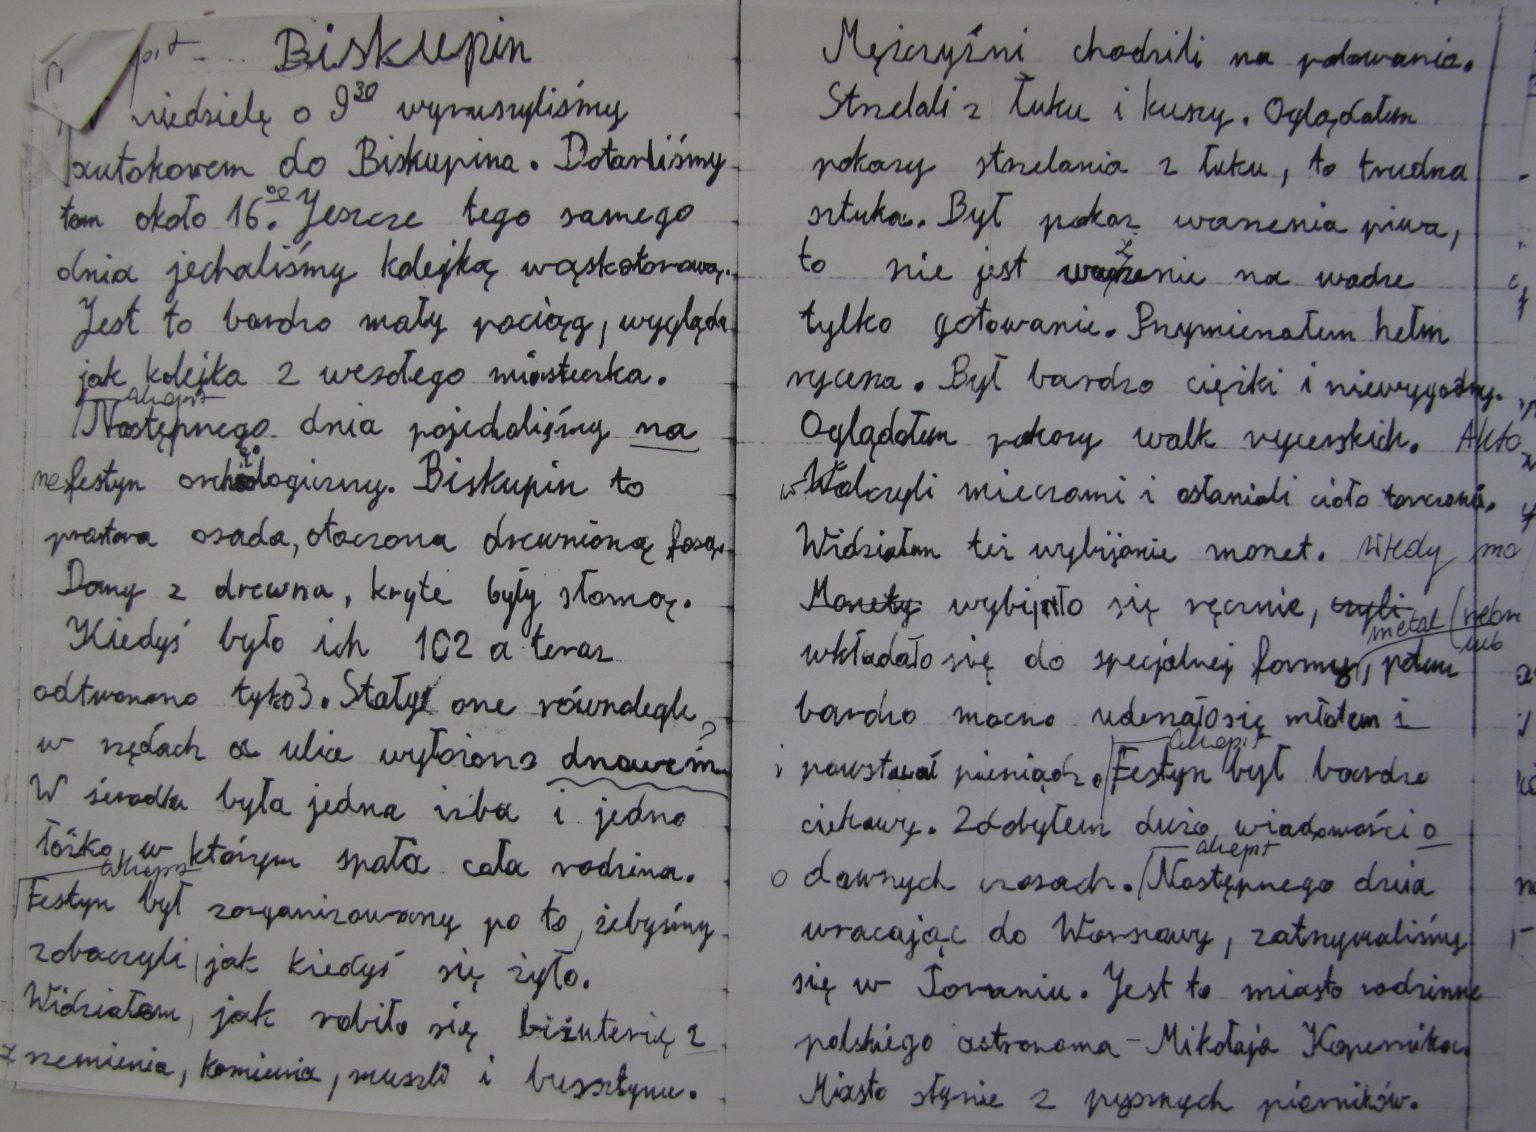 Biskupin
niedzielę o 9³⁰ wyruszyliśmy
autokarem do Biskupina. Dotarliśmy
tam około 16.⁰⁰ Jeszcze tego samego
dnia jechaliśmy kolejką wąskotorową.
Jest to bardzo mały pociąg, wygląda
jak kolejka z wesołego miasteczka.
akapit
Następnego dnia pojechaliśmy na
na festyn archeologiczny. Biskupin to
prastara osada, otoczona drewnianą fosą.
Domy z drewna, kryte były słomą.
Kiedyś było ich 102 a teraz
odtworzono tyko 3. Stały one równolegle
w rzędach a ulice wyłożono drzewem ?
W środku była jedna izba i jedno
łóżko w którym spała cała rodzina.
akapit
Festyn był zorganizowany po to, żebyśmy
zobaczyli, jak kiedyś się żyło.
Widziałam, jak robiło się biżuterię z
z rzemienia, kamienia, muszli i bursztynu.
Mężczyźni chodzili na polowania.
Strzelali z łuku i kuszy. Oglądałem
pokazy strzelania z łuku, to trudna
sztuka. Był pokaz warzenia piwa,
to nie jest ważenie na wadze
tylko gotowanie. Przymierzałem hełm
rycerza. Był bardzo ciężki i niewygodny.
Oglądałem pokazy walk rycerskich. Akto
Walczyli mieczami i osłaniali ciało tarczami.
Widziałam też wybijanie monet. Wtedy mo
Monety wybijało się ręcznie, czyli
metal
wkładało się do specjalnej formy, potem
bardzo mocno uderzało się młotem i
i powstawał pieniądz. akapit Festyn był bardzo
ciekawy. Zdobyłem dużo wiadomości o
akapit
o dawnych czasach. Następnego dnia
wracając do Warszawy, zatrzymaliśmy
się w Toruniu. Jest to miasto rodzinne
polskiego astronoma - Mikołaja Kopernika.
Miasto słynie z pysznych pierników.